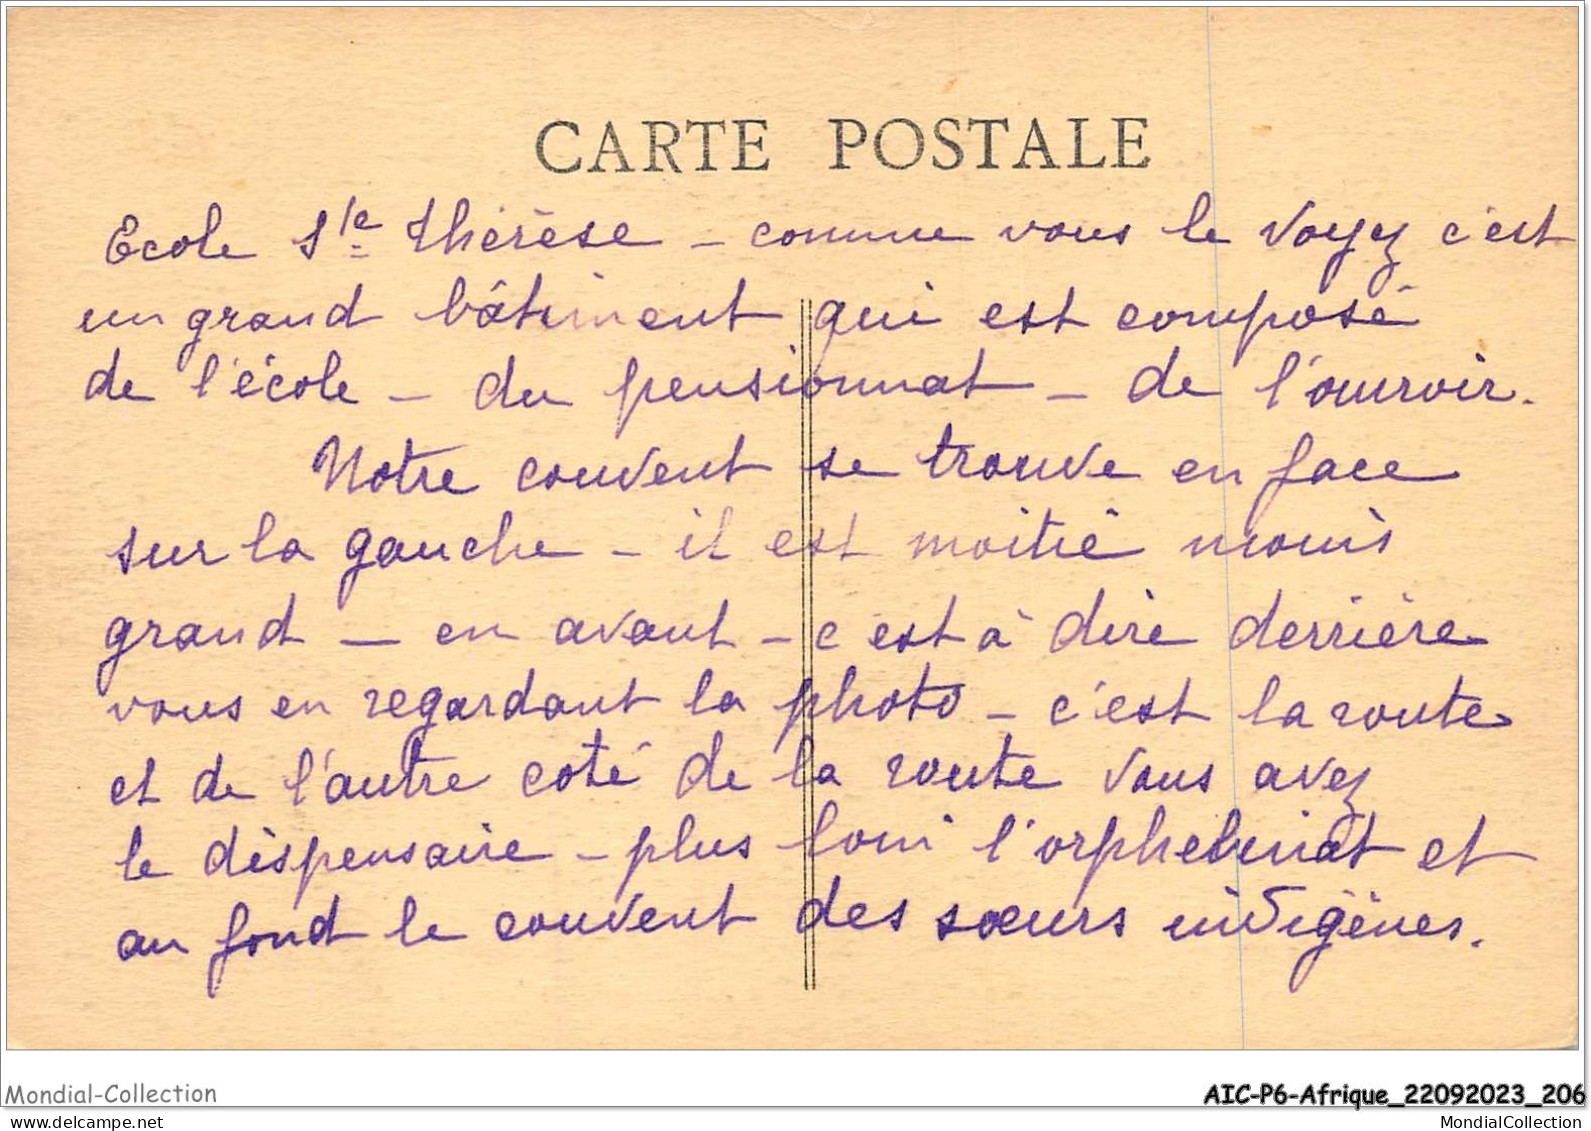 CARTE POSTALE
Ecole Ste Thérèse – comme vous le voyez c'est
un grand bâtiment qui est composé
de l'école – du pensionnat – de l'ouvroir.
Notre couvent se trouve en face
sur la gauche – il est moitié moins
grand – en avant – c'est à dire derrière
vous en regardant la photo – c'est la route
et de l'autre coté de la route vous avez
le dispensaire – plus loin l'orphelinat et
au fond le couvent des sœurs indigènes.
Mondial-Collection
AIC-P6-Afrique_22092023_206
delcampe.net
MondialCollection